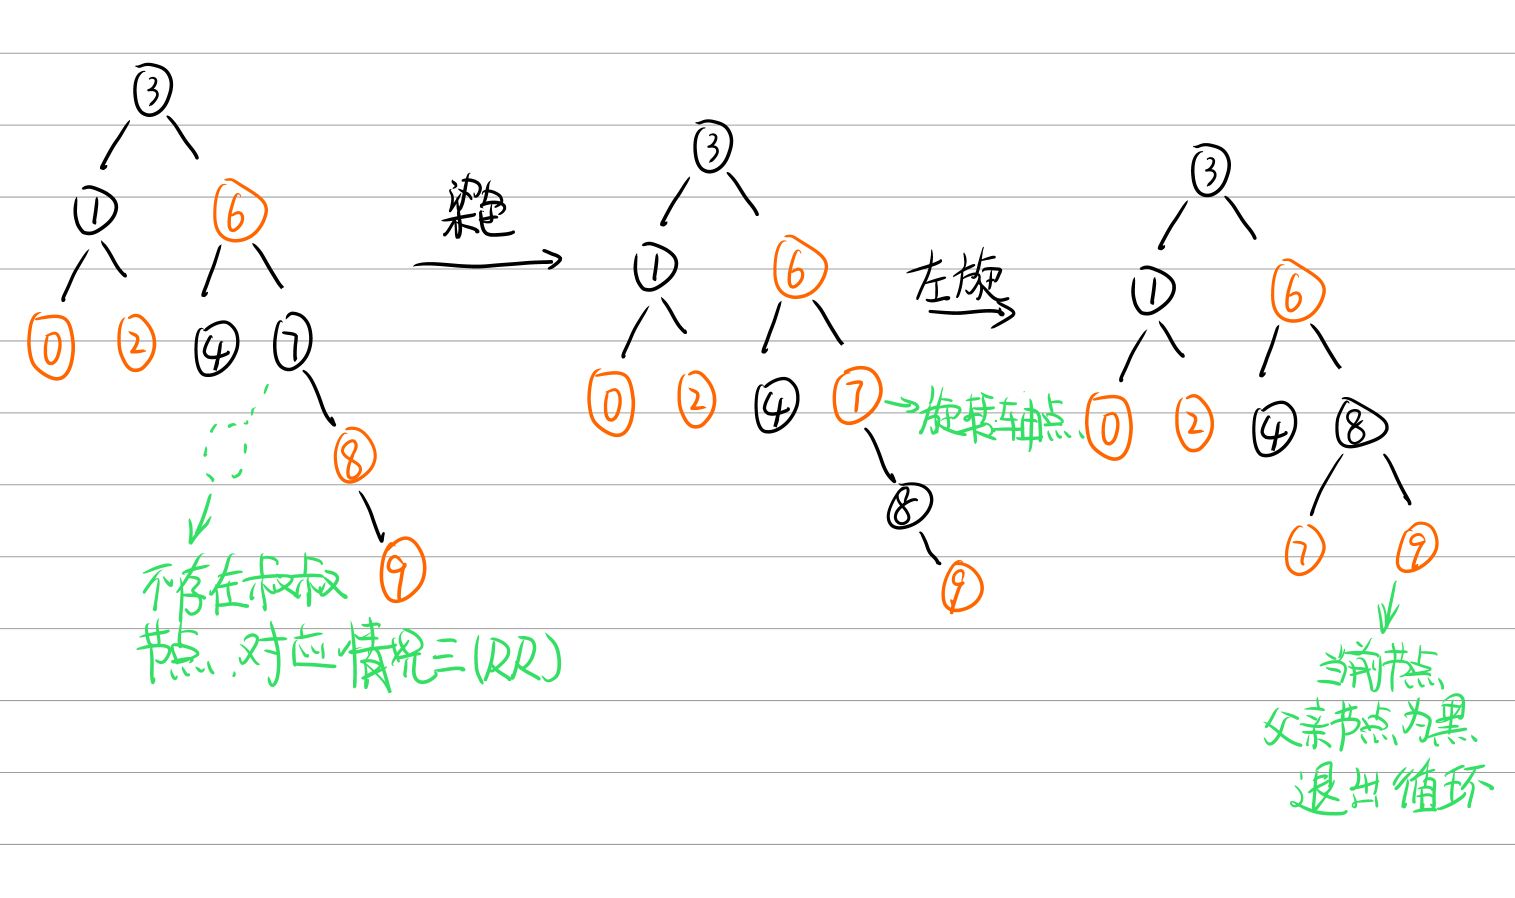 3
1 6
0 2 4 7
8
9
不存在叔叔
节点.对应情况三(RR)
染色
3
1 6
0 2 4 7
→旋转轴点
8
9
左旋
3
1 6
0 2 4 8
7 9
当前节点
父亲节点为黑
退出循环